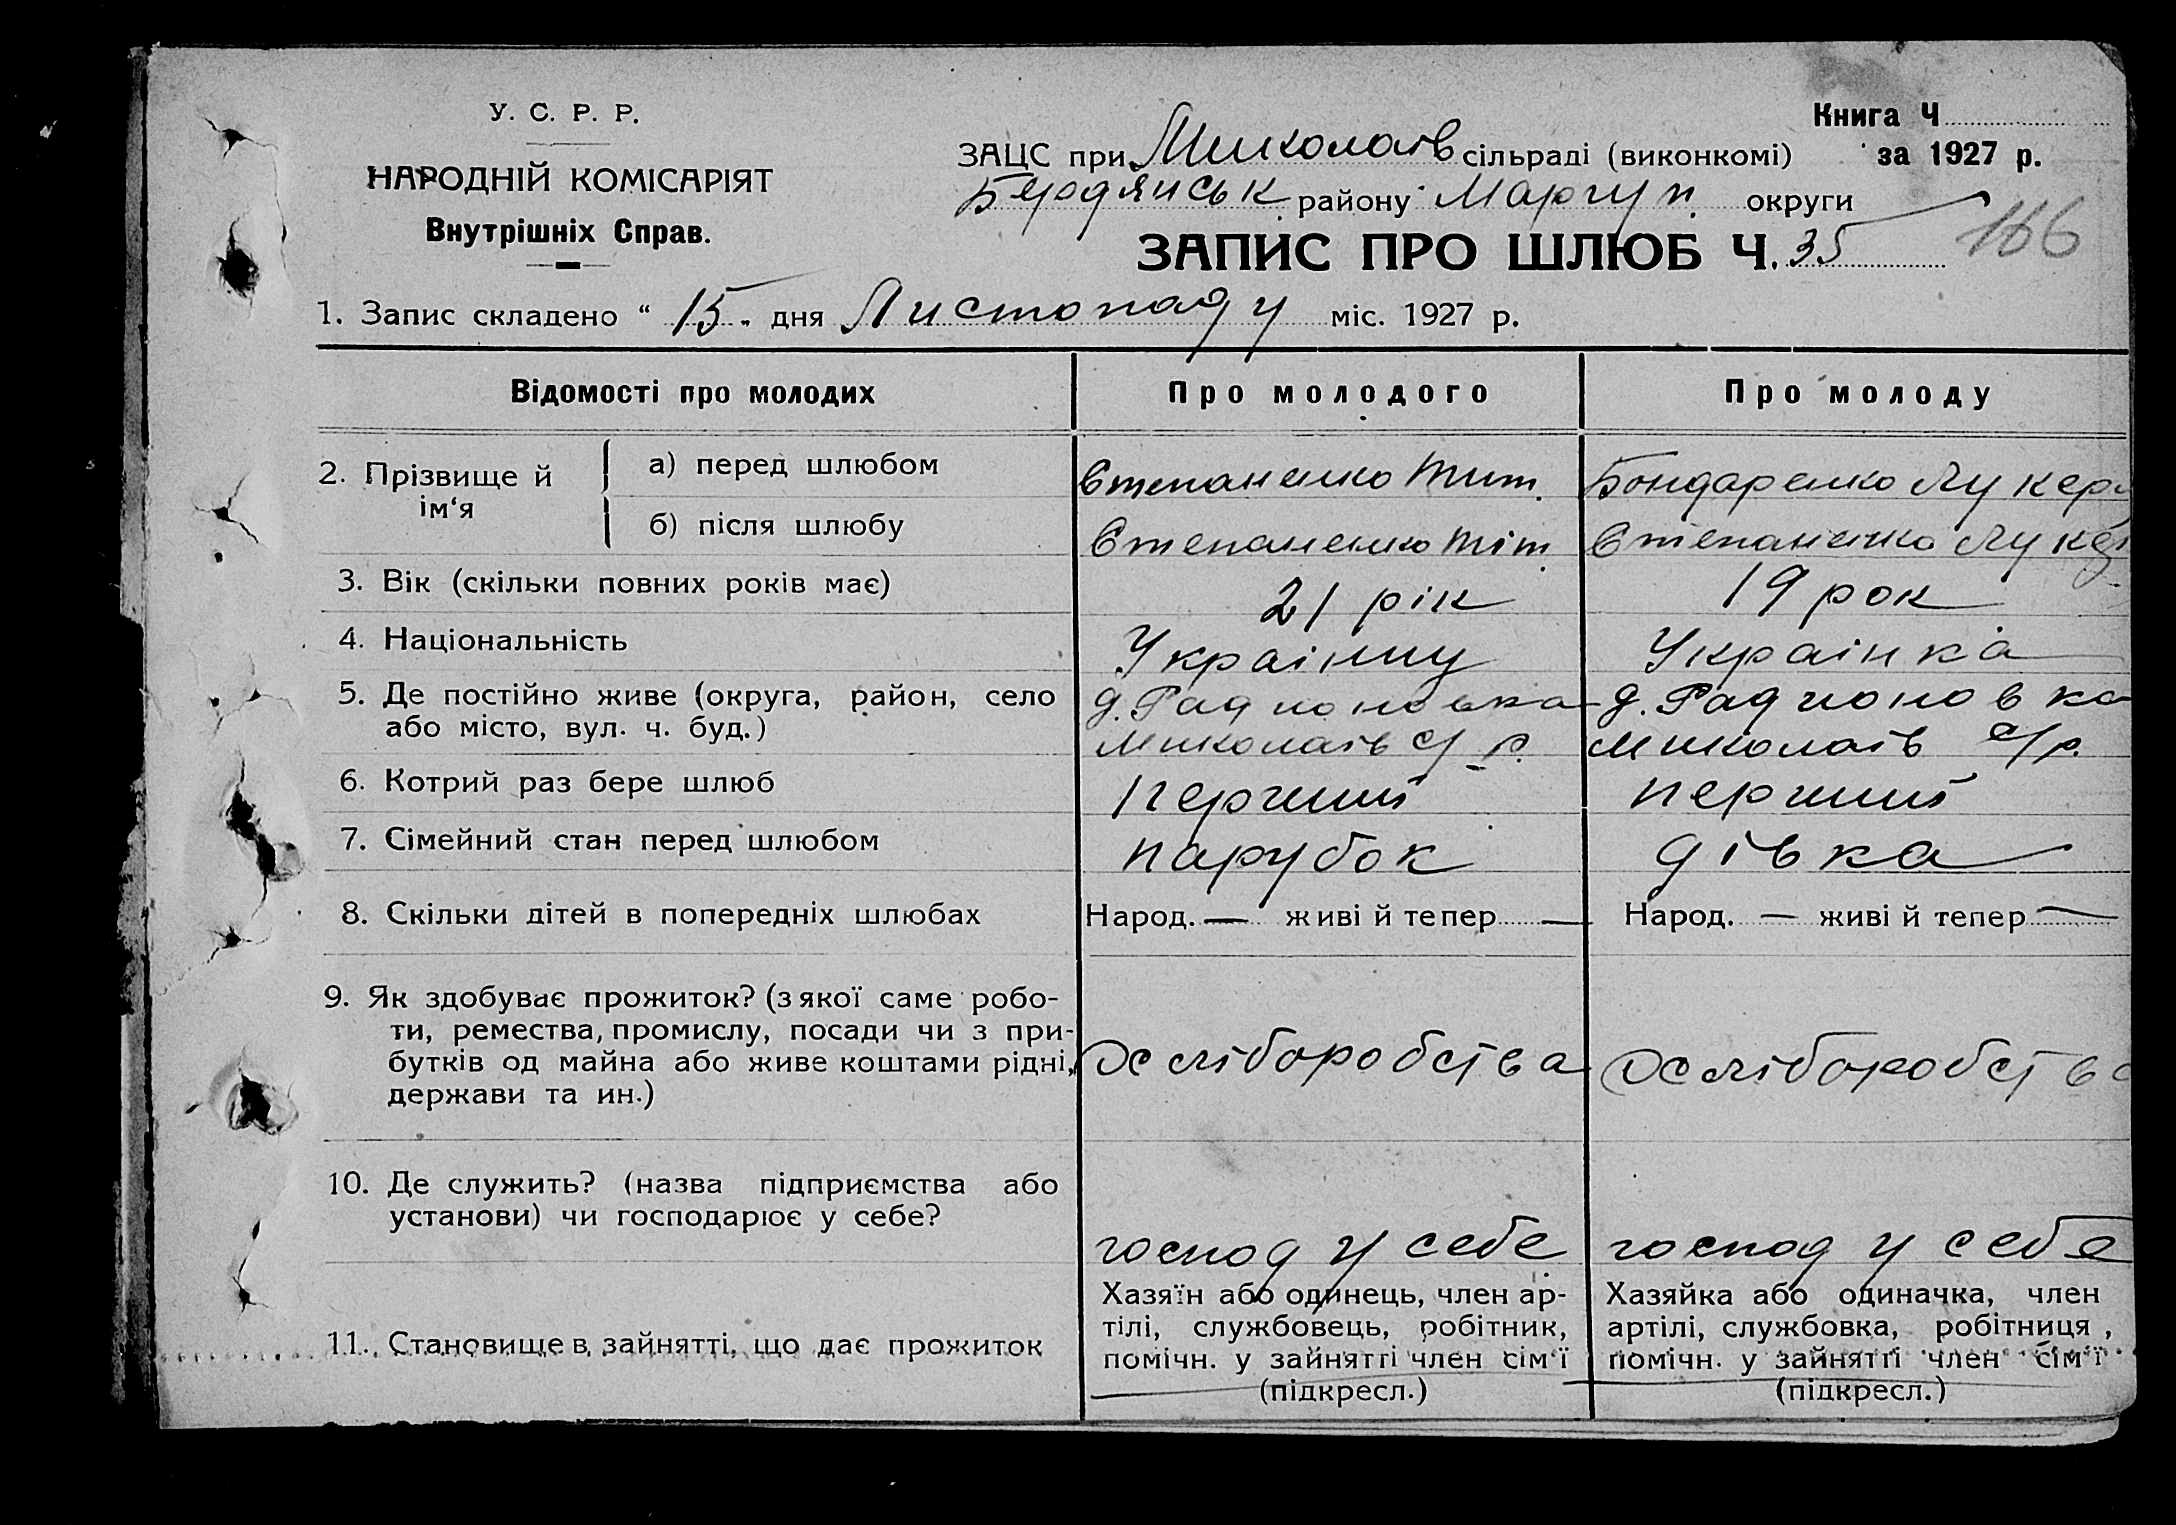 У. С. Р. Р.
НАРОДНІЙ КОМІСАРІЯТ
Внутрішніх Справ.
Книга Ч
ЗАЦС при Миколаїв сільраді (виконкомі) за 1927 р.
Бердянськ району Маріуп. округи
ЗАПИС ПРО ШЛЮБ Ч. 35 166
1. Запис складено “ 15 „ дня Листопаду міс. 1927 р.
Відомості про молодих Про молодого Про молоду
2. Прізвище й ім‘я
а) перед шлюбом Степаненко Тит. Бондаренко Лукер
б) після шлюбу Степаненко Тіт. Степаненко
3. Вік (скільки повних років має) 21 рік 19 рок
4. Національність Українцу Українка
5. Де постійно живе (округа, район, село д. Радионовка д. Радионовка
або місто, вул. ч. буд.) Миколаїв с/р. Миколаїв с/р.
6. Котрий раз бере шлюб перший перший
7. Сімейний стан перед шлюбом парубок дівка
8. Скільки дітей в попередніх шлюбах Народ. — живі й тепер — Народ. — живі й тепер —
9. Як здобуває прожиток? (з якої саме робо-
ти, ремества, промислу, посади чи з при-
бутків од майна або живе коштами рідні, хліборобства хліборобства
держави та ин.)
10. Де служить? (назва підприємства або
установи) чи господарює у себе?
господ у себе господ у себе
11. Становище в зайнятті, що дає прожиток
Хазяїн або одинець, член ар-
тілі, службовець, робітник,
помічн. у зайнятті член сім‘ї
(підкресл.)
Хазяйка або одиначка, член
артілі, службовка, робітниця,
помічн. у зайнятті член сім‘ї
(підкресл.)